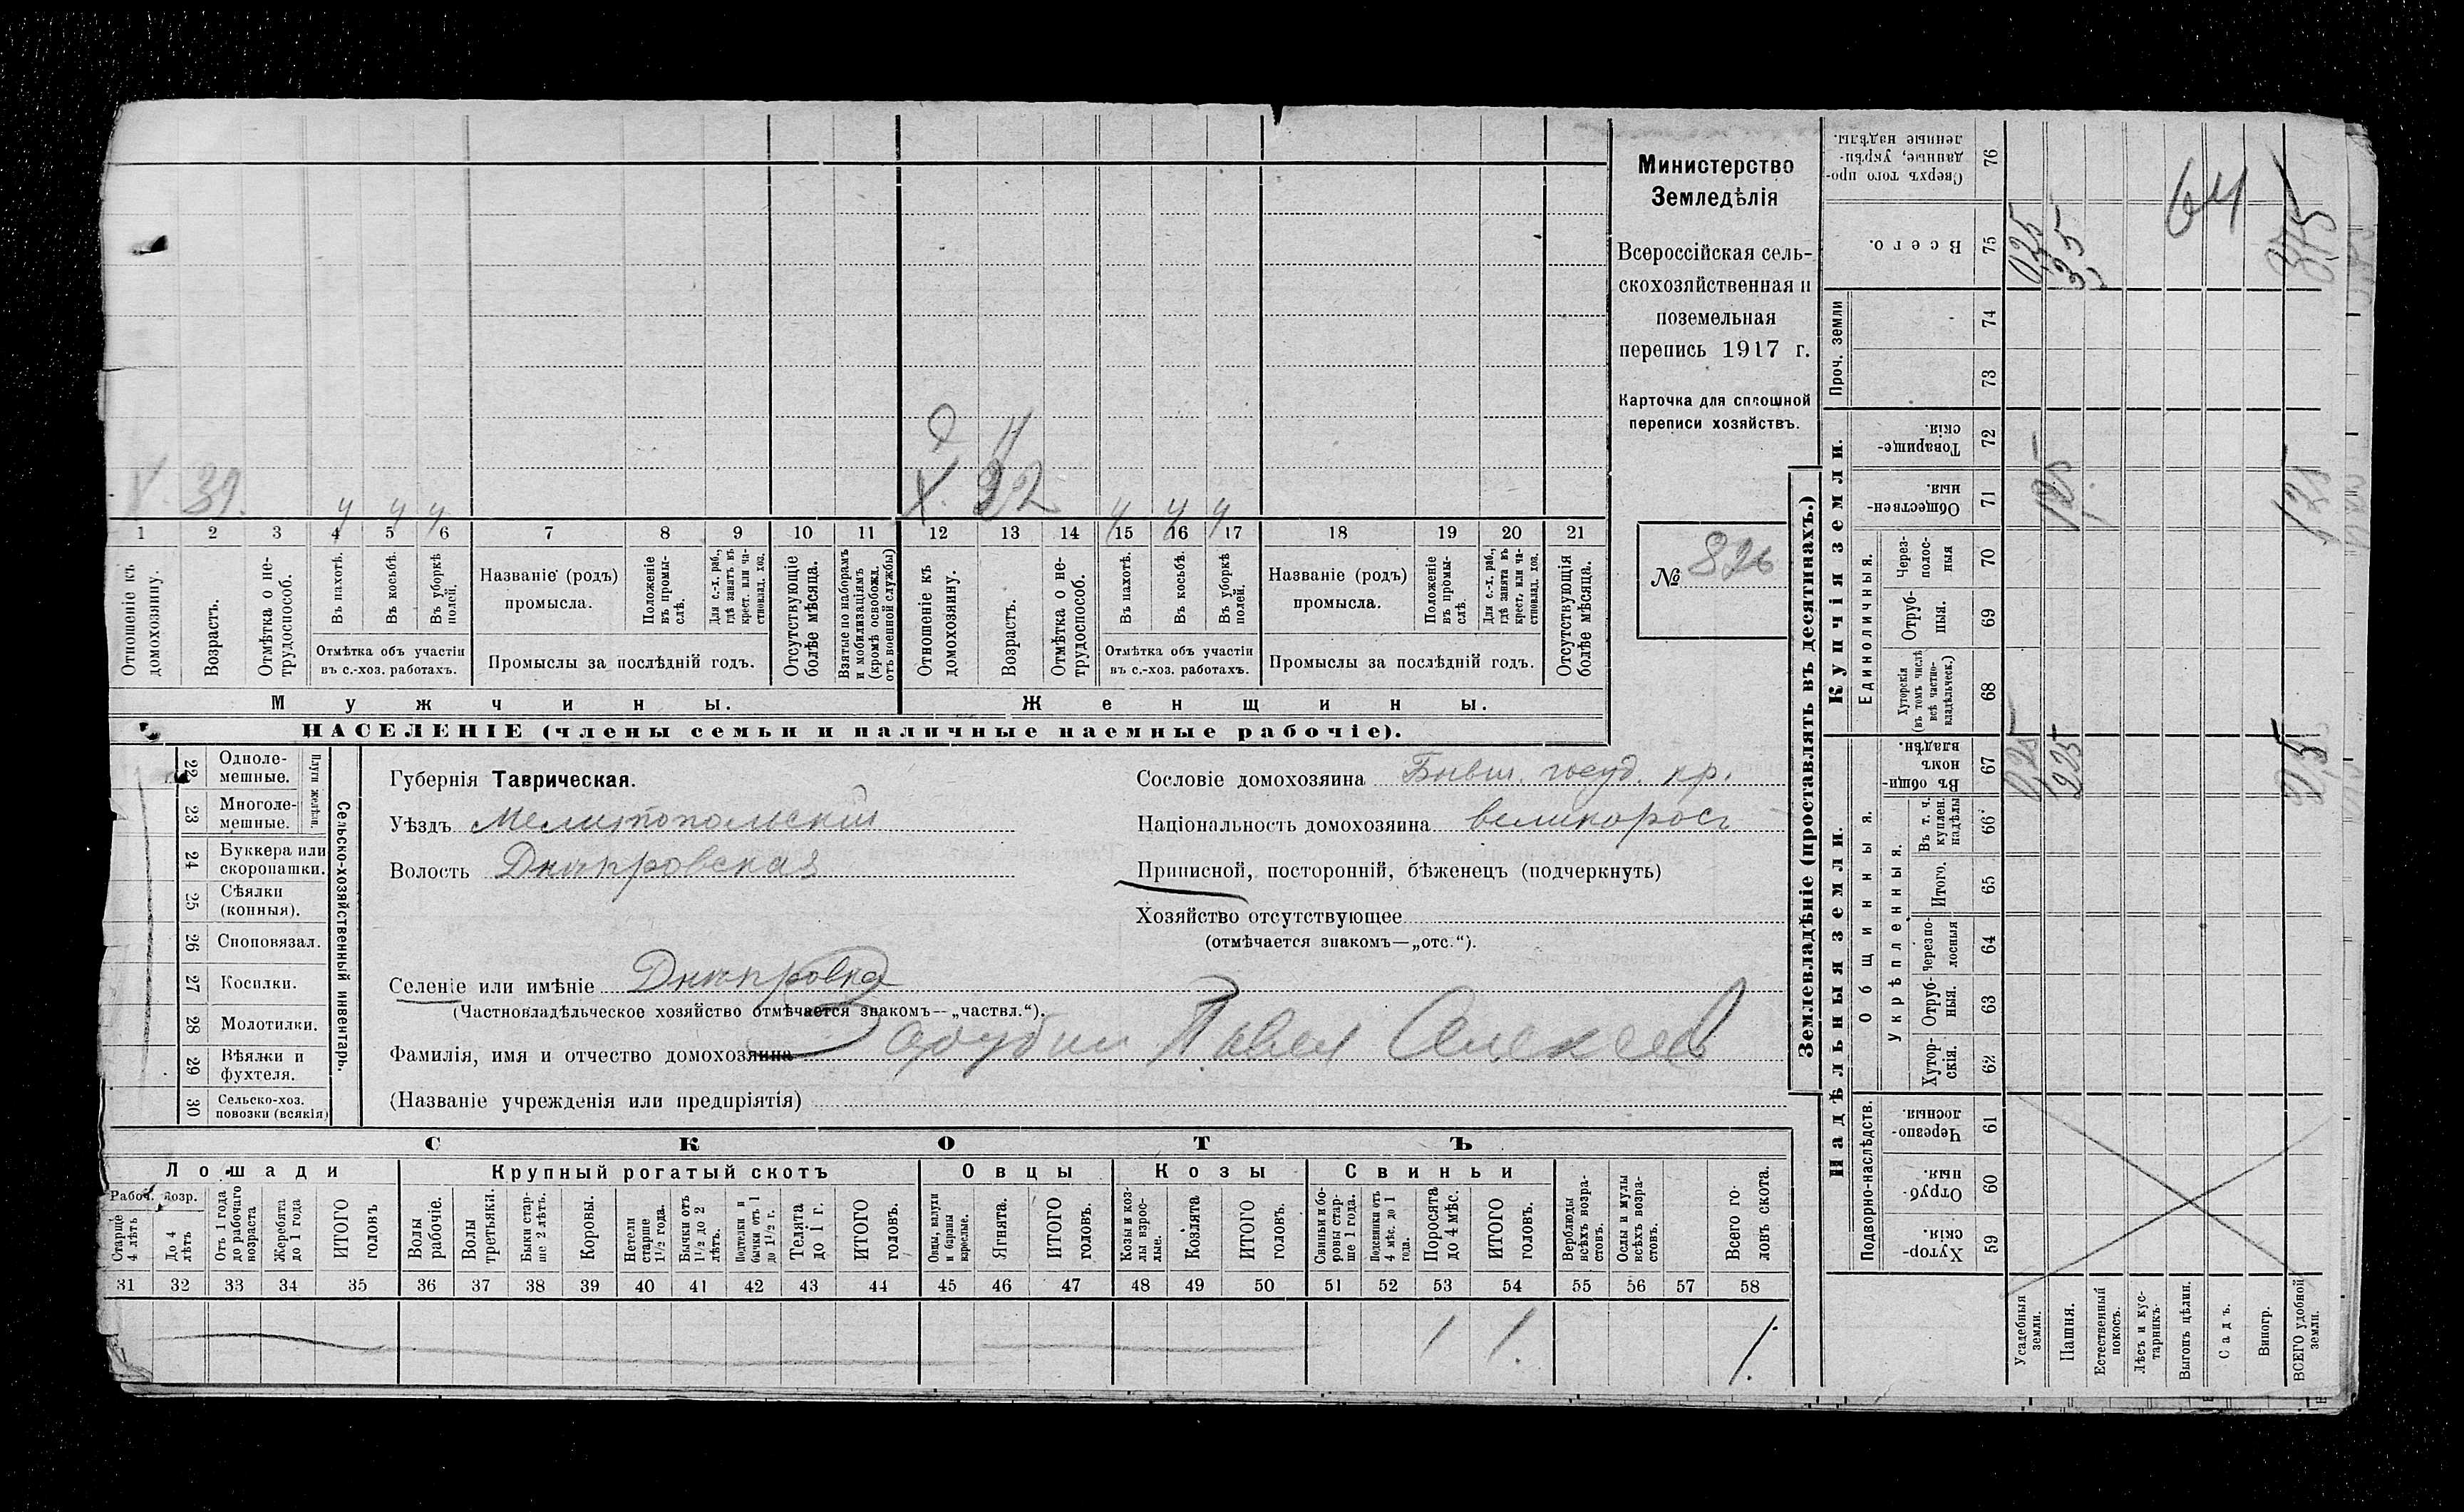 Министерство
Земледѣлія
Всероссійская сель-
скохозяйственная и
поземельная
перепись 1917 г.
Карточка для сплошной
переписи хозяйствъ.
№ 826
Д 4
Х. 39. ч ч ч Х. 32 ч ч ч
1 2 3 4 5 6 7 8 9 10 11 12 13 14 15 16 17 18 19 20 21
Отношеніе къ домохозяину.
Возрастъ.
Отмѣтка о не-трудоспособ.
Въ пахотѣ.
Въ косьбѣ.
Въ уборкѣ полей.
Отмѣтка объ участіи въ с.-хоз. работахъ.
Названіе (родъ) промысла.
Положеніе въ промы-слѣ.
Для с.-х. раб., гдѣ занятъ въ крест. или ча-стновлад. хоз.
Промыслы за послѣдній годъ.
Отсутствующіе болѣе мѣсяца.
Взятые по наборамъ и мобилизаціямъ (кромѣ освобожд. отъ военной службы)
Отношеніе къ домохозяину.
Возрастъ.
Отмѣтка о не-трудоспособ.
Въ пахотѣ.
Въ косьбѣ.
Въ уборкѣ полей.
Отмѣтка объ участіи въ с.-хоз. работахъ.
Названіе (родъ) промысла.
Положеніе въ промы-слѣ.
Для с.-х. раб., гдѣ занята въ крест. или ча-стновлад. хоз.
Промыслы за послѣдній годъ.
Отсутствующія болѣе мѣсяца.
Мужчины. Женщины.
НАСЕЛЕНІЕ (члены семьи и наличные наемные рабочіе).
Сельско-хозяйственный инвентарь.
Плуги желѣзн.
22 Одноле-мешные.
23 Многоле-мешные.
24 Буккера или скоропашки.
25 Сѣялки (конныя).
26 Сноповязал.
27 Косилки.
28 Молотилки.
29 Вѣялки и фухтеля.
30 Сельско-хоз. повозки (всякія)
Губернія Таврическая.
Уѣздъ Мелитопольскій
Волость Днѣпровская
Селеніе или имѣніе Днѣпровка
(Частновладѣльческое хозяйство отмѣчается знакомъ—„частвл.“).
Фамилія, имя и отчество домохозяина Зарубин Павел Алексеев
(Названіе учрежденія или предпріятія)
Сословіе домохозяина Бывш. госуд. кр.
Національность домохозяина великорос
Приписной, посторонній, бѣженецъ (подчеркнуть)
Хозяйство отсутствующее
(отмѣчается знакомъ—„отс.“).
СКОТЪ
Лошади Крупный рогатый скотъ Овцы Козы Свиньи
Рабоч. возр.
Старше 4 лѣтъ
До 4 лѣтъ
Отъ 1 года до рабочаго возраста
Жеребята до 1 года
ИТОГО головъ
Волы рабочіе.
Волы третьяки.
Быки стар-ше 2 лѣтъ.
Коровы.
Нетели старше 1½ года.
Бычки отъ 1½ до 2 лѣтъ.
Подтелки и бычки отъ 1 до 1½ г.
Телята до 1 г.
ИТОГО головъ.
Овцы, валухи и бараны взрослые.
Ягнята.
ИТОГО головъ.
Козы и коз-лы взрос-лые.
Козлята
ИТОГО головъ.
Свиньи и бо-ровы стар-ше 1 года.
Подсвинки отъ 4 мѣс. до 1 года.
Поросята до 4 мѣс.
ИТОГО головъ.
Верблюды всѣхъ возра-стовъ.
Ослы и мулы всѣхъ возра-стовъ.
Всего го-ловъ скота.
31 32 33 34 35 36 37 38 39 40 41 42 43 44 45 46 47 48 49 50 51 52 53 54 55 56 57 58
1 1. 1.
Землевладѣніе (проставлять въ десятинахъ.)
Надѣльныя земли. Купчія земли. Проч. земли
Подворно-наслѣдств.
Общинныя.
Укрѣпленныя.
Единоличныя.
Хутор-скія. 59
Отруб-ныя. 60
Черезпо-лосныя. 61
Хутор-скія. 62
Отруб-ныя. 63
Черезпо-лосныя 64
Итого. 65
Въ т. ч. куплен. надѣлы 66
Въ общин-номъ владѣн. 67
Хуторскія (въ томъ числѣ всѣ частно-владѣльческ.) 68
Отруб-ныя. 69
Через-полос-ныя 70
Обществен-ныя. 71
Товарище-скія. 72
73
74
Всего. 75
Сверхъ того про-данные, укрѣп-ленные надѣлы. 76
Усадебныя земли. 0,25 0,25
Пашня. 3,5
Естественный покосъ.
Лѣсъ и кус-тарникъ.
Выгонъ цѣлин. 64
Садъ.
Виногр.
ВСЕГО удобной земли. 2,5